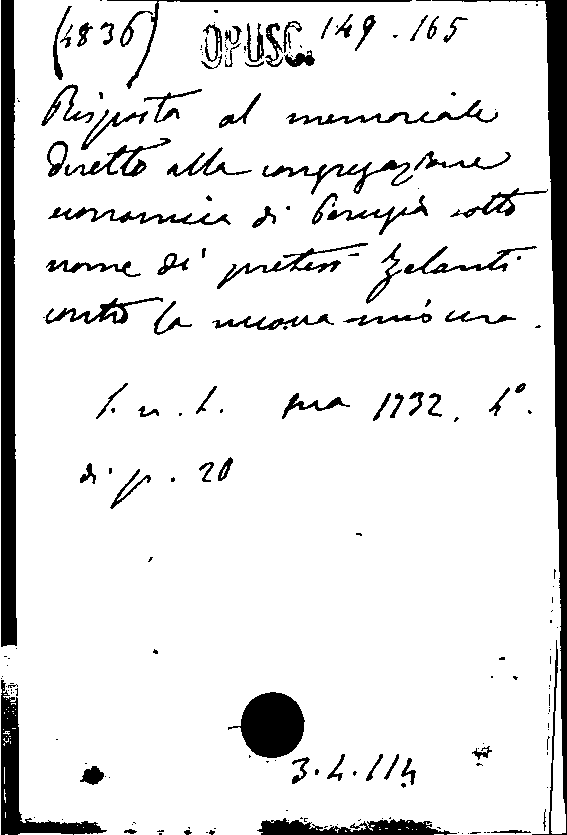 (4836) OPUSC. 149.165
Risposta al memoriale
diretto alla congregazione
economica di Perugia sotto
nome di pretesi Zelanti
contro la nuova misura.
s. n. t. ma 1732. 4°.
di p. 20
3.4.114